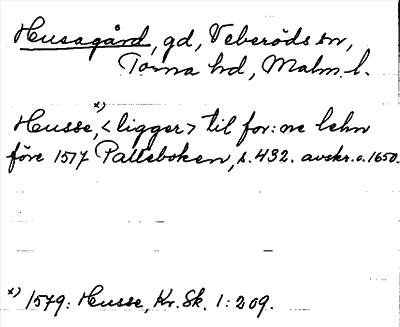 Husagård, gd, Veberöds sn,
Torna hd, Malm. l.
Husse, x) <ligger> til for: ne lehn
före 1517 Palleboken, s. 432. avskr. c. 1650.
x) 1579: Husse, Kr. Sk. 1: 209.